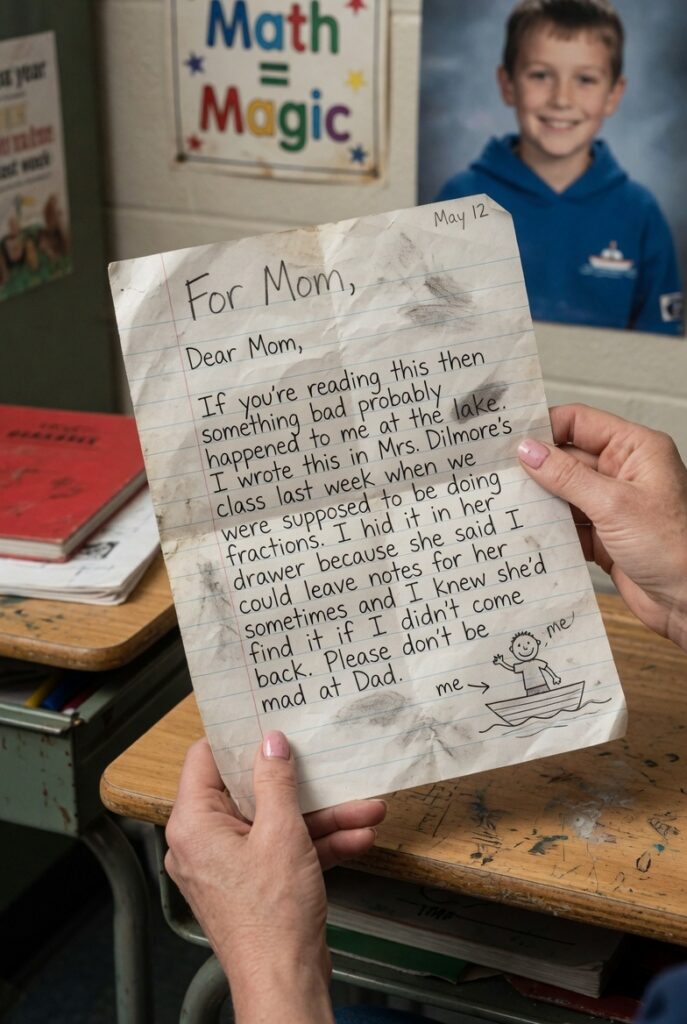 Math
=
Magic
year
week
May 12
For Mom,
Dear Mom,
If you're reading this then
something bad probably
happened to me at the lake.
I wrote this in Mrs. Dilmore's
class last week when we
were supposed to be doing
fractions. I hid it in her
drawer because she said I
could leave notes for her
sometimes and I knew she'd
find it if I didn't come
back. Please don't be
mad at Dad.
me
me